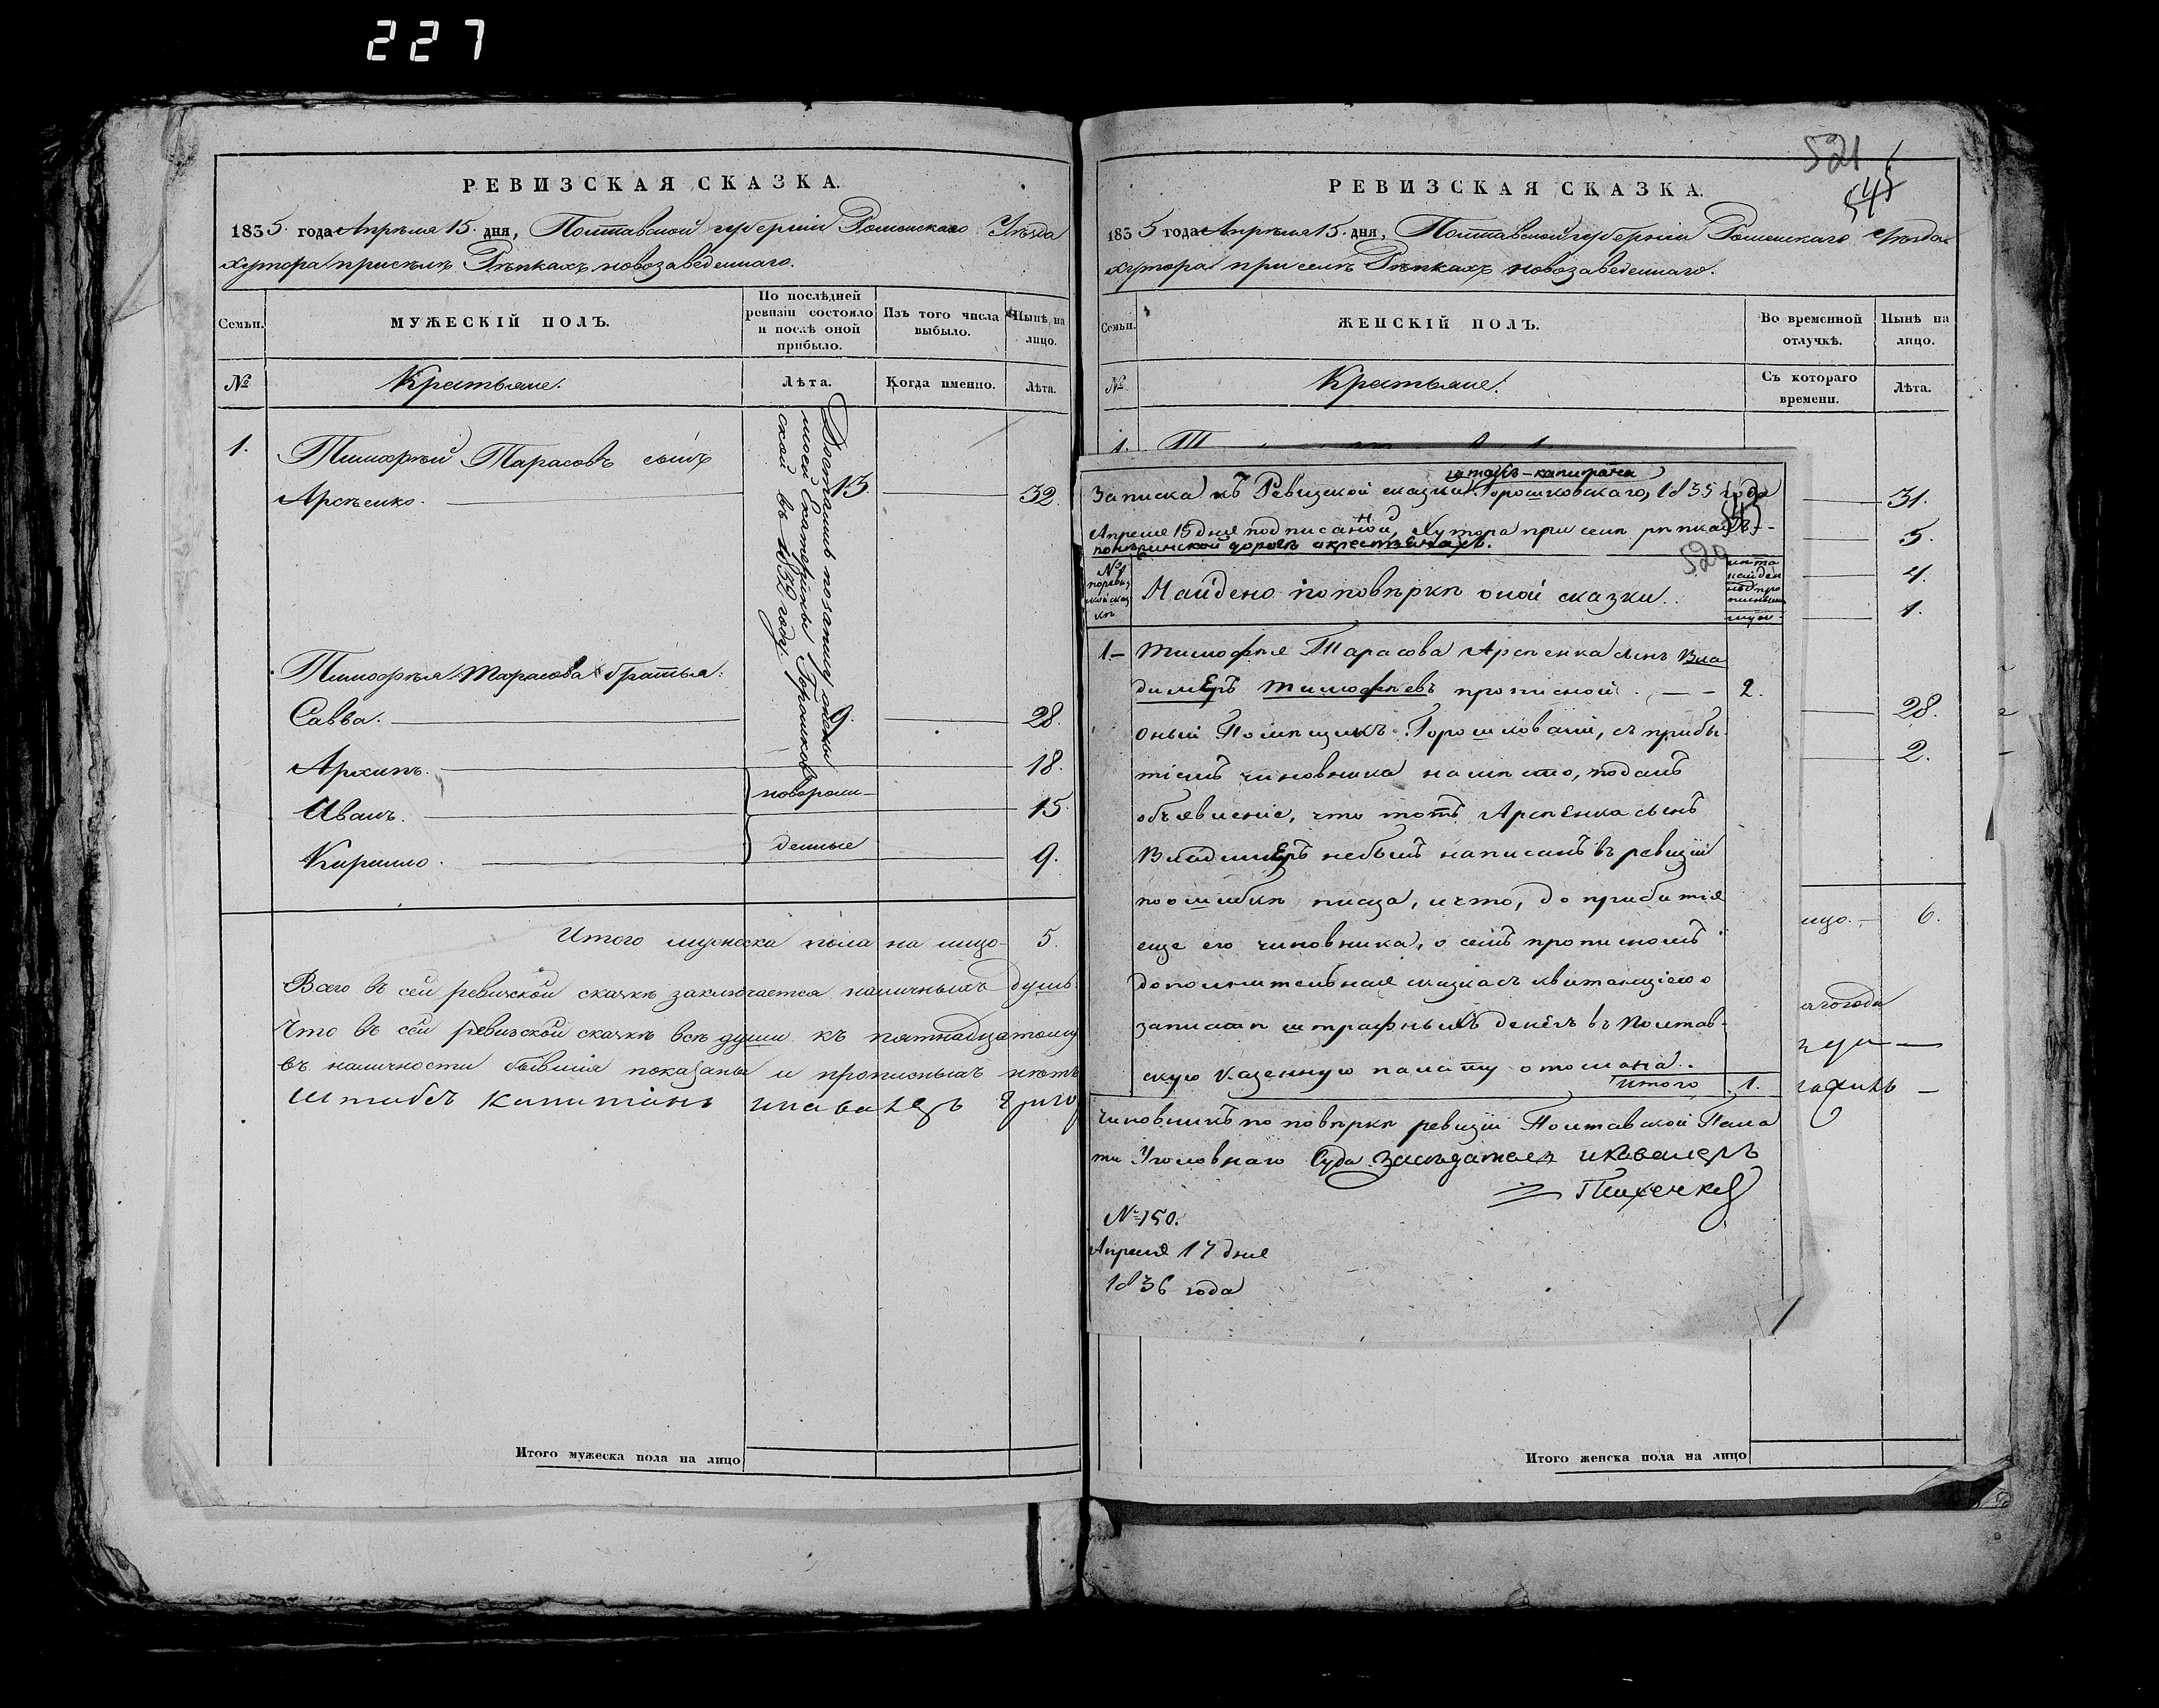 227
РЕВИЗСКАЯ СКАЗКА.
1835 года Апрѣля 15. дня, Полтавской губерніи Роменскаго Уѣзда
хутора при селѣ Рѣпкахъ новозаведеннаго.
Семьи.
МУЖЕСКІЙ ПОЛЪ.
По послѣдней ревизіи состояло и послѣ оной прибыло.
Изъ того числа выбыло.
Нынѣ на лицо.
№
Крестьяне.
Лѣта.
Когда именно.
Лѣта.
1.
Тимофѣй Тарасовъ сынъ
Арсѣенко. 13. 32.
Тимофѣя Тарасова братья:
Савва. 9. 28.
Архипъ. 18.
Иванъ. 15.
Кирилло. 9.
новорож-
денные
Итого мужеска пола на лицо 5.
Всего въ сей ревизской сказкѣ заключается наличныхъ душъ
Что въ сей ревизской сказкѣ всѣ души къ пятнадцатому
въ наличности бывшія показаны и прописныхъ нѣтъ
Штабсъ капитанъ
Итого мужеска пола на лицо
521
545
РЕВИЗСКАЯ СКАЗКА.
1835 года Апрѣля 15. дня, Полтавской губерніи Роменскаго Уѣзда
хутора при селѣ Рѣпкахъ новозаведеннаго.
Семьи.
ЖЕНСКІЙ ПОЛЪ.
Во временной отлучкѣ.
Нынѣ на лицо.
№
Крестьяне.
Съ котораго времени.
Лѣта.
31.
5.
4.
1.
28.
2.
6.
штабсъ-капитана
Записка къ Ревизской сказки Горошковскаго, 1835 года
Апреля 15 дня подписаной, Хутора при селѣ рѣпкахъ
520
Найдено поповѣркѣ оной сказки.
1 — Тимофѣя Тарасова Арсѣенка сынъ Вла
димеръ Тимофѣевъ прописной — — 2.
Оный Помѣщикъ Горошковскій, съ прибы
тіемъ чиновника на мѣсто, подалъ
объявленіе, что тотъ Арсѣенка сынъ
Владимеръ небылъ написанъ въ ревизіи
поошибкѣ писца, и что, до прибытія
еще его чиновника, о семъ прописномъ
дополнительная сказка съ квитанціею о
запискѣ штрафныхъ денегъ въ Полтав-
скую Казенную палату отослана.
Итого 1.
Чиновникъ по повѣркѣ ревизіи Полтавской Пала
ты Уголовнаго Суда Засѣдатель и кавалеръ
№ 150.
Апреля 17 дня
1836 года
Итого женска пола на лицо